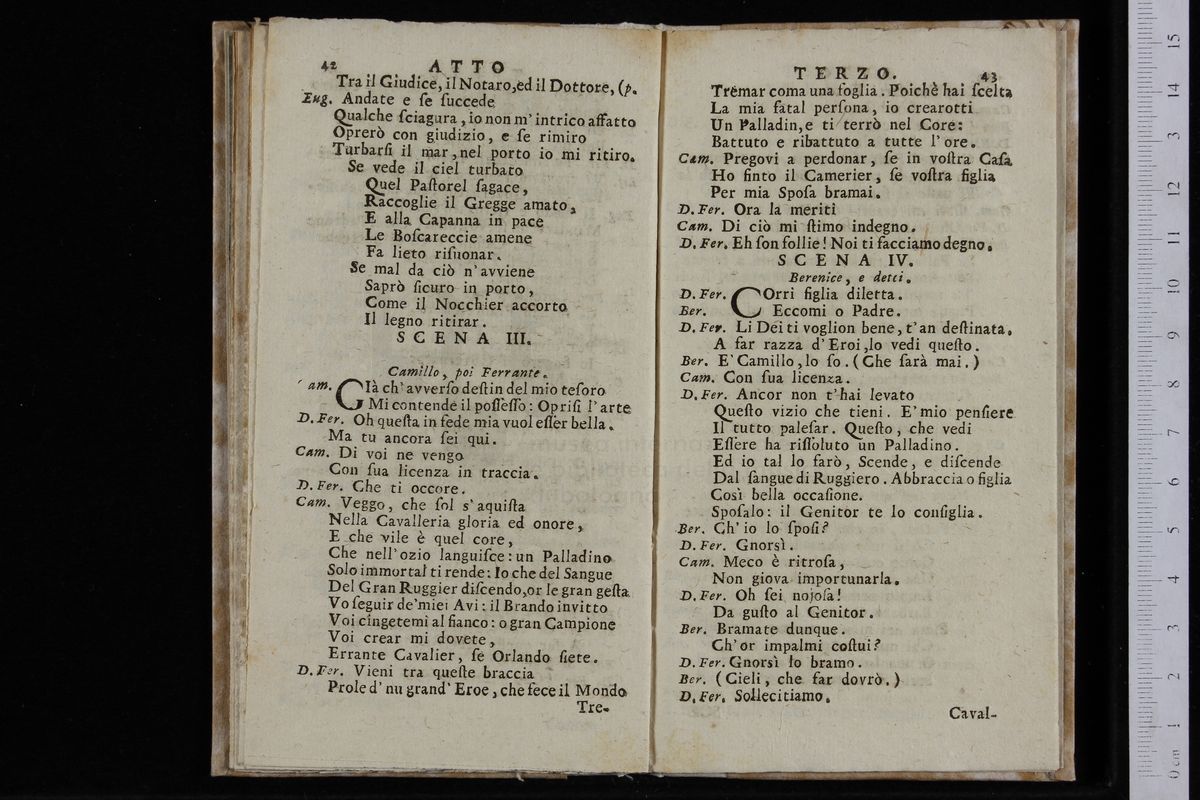 42 ATTO
Tra il Giudice, il Notaro, ed il Dottore, (p.
Eug. Andate e ſe ſuccede
Qualche ſciagura, io non m' intrico affatto
Oprerò con giudizio, e ſe rimiro
Turbarſi il mar, nel porto io mi ritiro.
Se vede il ciel turbato
Quel Paſtorel ſagace,
Raccoglie il Gregge amato,
E alla Capanna in pace
Le Boſcareccie amene
Fa lieto riſuonar.
Se mal da ciò n' avviene
Saprò ſicuro in porto,
Come il Nocchier accorto
Il legno ritirar.
SCENA III.
Camillo, poi Ferrante.
am. GIà ch' avverſo deſtin del mio teſoro
Mi contende il poſſeſſo: Opriſi l' arte
D. Fer. Oh queſta in fede mia vuol eſſer bella.
Ma tu ancora ſei qui.
Cam. Di voi ne vengo
Con ſua licenza in traccia.
D. Fer. Che ti occore.
Cam. Veggo, che ſol s' aquiſta
Nella Cavalleria gloria ed onore,
E che vile è quel core,
Che nell' ozio languiſce: un Palladino
Solo immortal ti rende: Io che del Sangue
Del Gran Ruggier diſcendo, or le gran geſta
Vo ſeguir de' miei Avi: il Brando invitto
Voi cingetemi al fianco: o gran Campione
Voi crear mi dovete,
Errante Cavalier, ſe Orlando ſiete.
D. Fer. Vieni tra queſte braccia
Prole d' nu grand' Eroe, che fece il Mondo
Tre-
TERZO. 43
Tremar coma una foglia. Poichè hai ſcelta
La mia fatal perſona, io crearotti
Un Palladin, e ti terrò nel Core:
Battuto e ribattuto a tutte l' ore.
Cam. Pregovi a perdonar, ſe in voſtra Caſa
Ho finto il Camerier, ſe voſtra figlia
Per mia Spoſa bramai.
D. Fer. Ora la meriti
Cam. Di ciò mi ſtimo indegno.
D. Fer. Eh ſon follie! Noi ti facciamo degno.
SCENA IV.
Berenice, e detti.
D. Fer. COrri figlia diletta.
Ber. Eccomi o Padre.
D. Fer. Li Dei ti voglion bene, t' an deſtinata,
A far razza d' Eroi, lo vedi queſto.
Ber. E' Camillo, lo ſo. (Che ſarà mai.)
Cam. Con ſua licenza.
D. Fer. Ancor non t' hai levato
Queſto vizio che tieni. E' mio penſiere
Il tutto paleſar. Queſto, che vedi
Eſſere ha riſſoluto un Palladino.
Ed io tal lo farò, Scende, e diſcende
Dal ſangue di Ruggiero. Abbraccia o figlia
Così bella occaſione.
Spoſalo: il Genitor te lo conſiglia.
Ber. Ch' io lo ſpoſi?
D. Fer. Gnorsì.
Cam. Meco è ritroſa,
Non giova importunarla.
D. Fer. Oh ſei nojoſa!
Da guſto al Genitor.
Ber. Bramate dunque.
Ch' or impalmi coſtui?
D. Fer. Gnorsì lo bramo.
Ber. (Cieli, che far dovrò.)
D. Fer. Sollecitiamo.
Caval-
0 cm 1 2 3 4 5 6 7 8 9 10 11 12 13 14 15